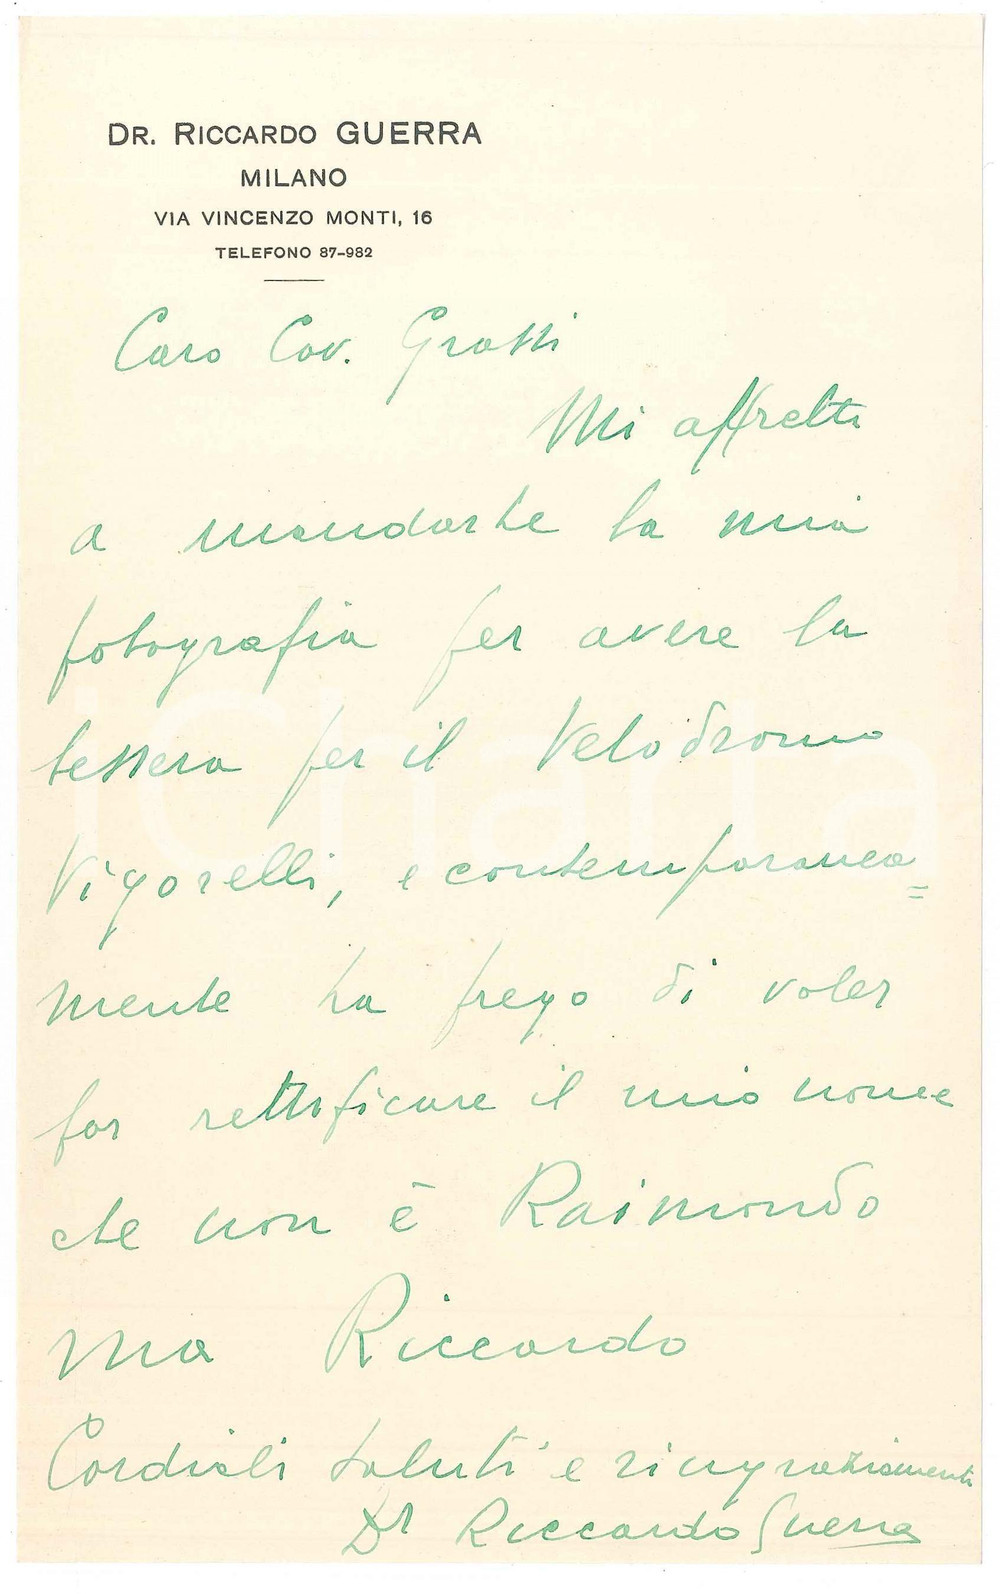 DR. RICCARDO GUERRA
MILANO
VIA VINCENZO MONTI, 16
TELEFONO 87-982
Caro Cav. Grassi
Mi affretto
a mandarLe la mia
fotografia per avere la
tessera per il Velodromo
Vigorelli, e contemporanea=
mente La prego di voler
far rettificare il mio nome
che non è Raimondo
ma Riccardo
Cordiali saluti e ringraziamenti
Dr Riccardo Guerra
iCharta